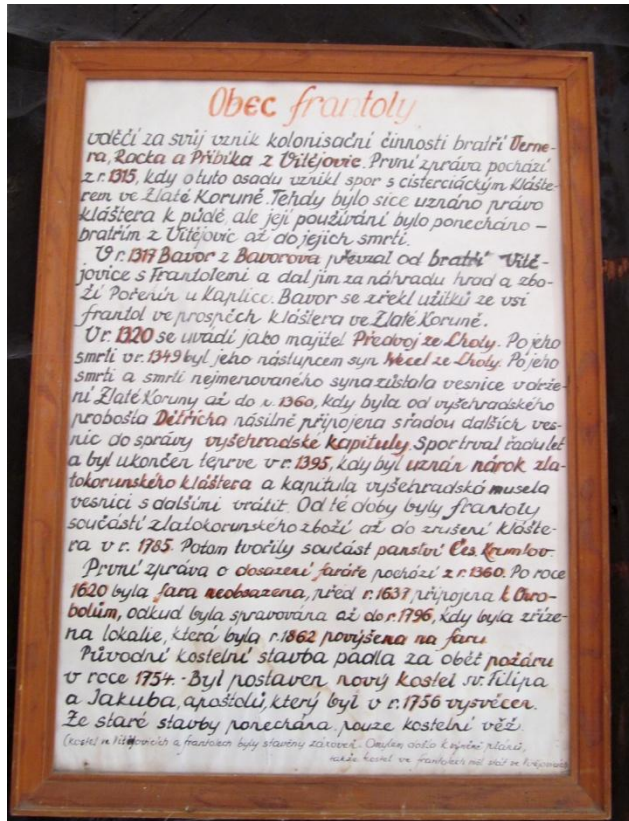 Obec Frantoly
vděčí za svůj vznik kolonisační činnosti bratří Verne-
ra, Racka a Přibíka z Vitějovic. První zpráva pochází
z r. 1315, kdy o tuto osadu vznikl spor s cisterciáckým klášte-
rem ve Zlaté Koruně. Tehdy bylo sice uznáno právo
kláštera k půdě, ale její používání bylo ponecháno -
bratřím z Vitějovic až do jejich smrti.
V r. 1317 Bavor z Bavorova převzal od bratří Vitě-
jovice s Frantolemi a dal jim za náhradu hrad a zbo-
ží Pořešín u Kaplice. Bavor se zřekl užitků ze vsi
frantol ve prospěch kláštera ve Zlaté Koruně.
V r. 1320 se uvádí jako majitel Předvoj ze Lhoty. Po jeho
smrti v r. 1349 byl jeho nástupcem syn Wecel ze Lhoty. Po jeho
smrti a smrti nejmenovaného syna zůstala vesnice v drže-
ní Zlaté Koruny až do r. 1360, kdy byla od vyšehradského
probošta Dětřicha násilně připojena s řadou dalších ves-
nic do správy vyšehradské kapituly. Spor trval řadu let
a byl ukončen teprve v r. 1395, kdy byl uznán nárok zla-
tokorunského kláštera a kapitula vyšehradská musela
vesnici s dalšími vrátit. Od té doby byly frantoly
součástí zlatokorunského zboží až do zrušení klášte-
ra v r. 1785. Potom tvořily součást panství Čes. Krumlov.
První zpráva o dosazení faráře pochází z r. 1360. Po roce
1620 byla fara neobsazena, před r. 1637 připojena k Chro-
bolům, odkud byla spravována až do r. 1796, kdy byla zříze-
na lokalie, která byla r. 1862 povýšena na faru
Původní kostelní stavba padla za oběť požáru
v roce 1754. - Byl postaven nový kostel sv. Filipa
a Jakuba, apoštolů, který byl v r. 1756 vysvěcen.
Ze staré stavby ponechána pouze kostelní věž.
(kostel ve Vitějovicích a frantolech byly stavěny zároveň. Omylem došlo k výměně plánů,
takže kostel ve frantolech měl stát ve Vitějovicích